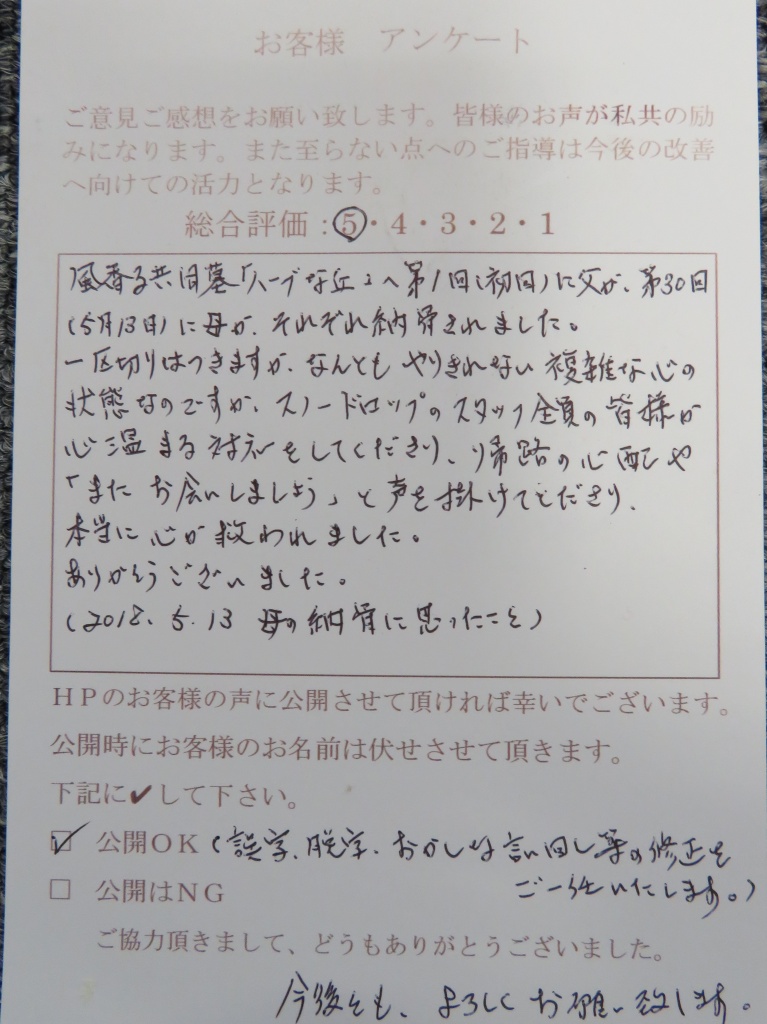 お客様 アンケート
ご意見ご感想をお願い致します。皆様のお声が私共の励
みになります。また至らない点へのご指導は今後の改善
へ向けての活力となります。
総合評価：5・4・3・2・1
風香る共同墓「ハーブな丘」へ第1回(初回)に父が、第30回
(5月13日)に母が、それぞれ納骨されました。
一区切りはつきますが、なんとも やりきれない 複雑な心の
状態なのですが、スノードロップのスタッフ全員の皆様が
心温まる対応をしてくださり、帰路の心配や
「また お会いしましょう」と声を掛けてくださり、
本当に心が救われました。
ありがとうございました。
(2018.5.13 母の納骨に思ったこと)
HPのお客様の声に公開させて頂ければ幸いでございます。
公開時にお客様のお名前は伏せさせて頂きます。
下記に✔して下さい。
☑ 公開OK(誤字、脱字、おかしな言い回し等の修正を
□ 公開はNG ご一任いたします。)
ご協力頂きまして、どうもありがとうございました。
今後とも、よろしくお願い致します。